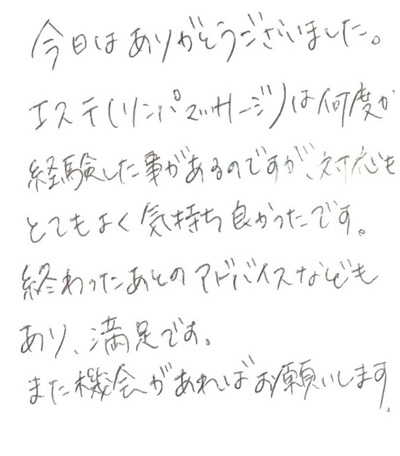 今日はありがとうございました。
エステ(リンパマッサージ)は何度か
経験した事があるのですが、対応も
とてもよく気持ち良かったです。
終わったあとのアドバイスなども
あり、満足です。
また機会があればお願いします。